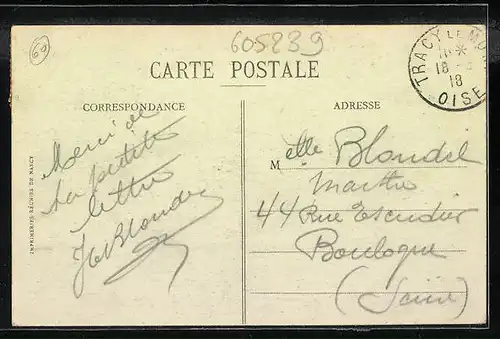 60
605239
TRACY LE M
18
18
OISE
CARTE POSTALE
CORRESPONDANCE
ADRESSE
Merci de
ta petite
lettre
Blondel
IMPRIMERIES RÉUNIES DE NANCY
Melle Blondel
Marthe
44 Rue Escudier
Boulogne
(Seine)